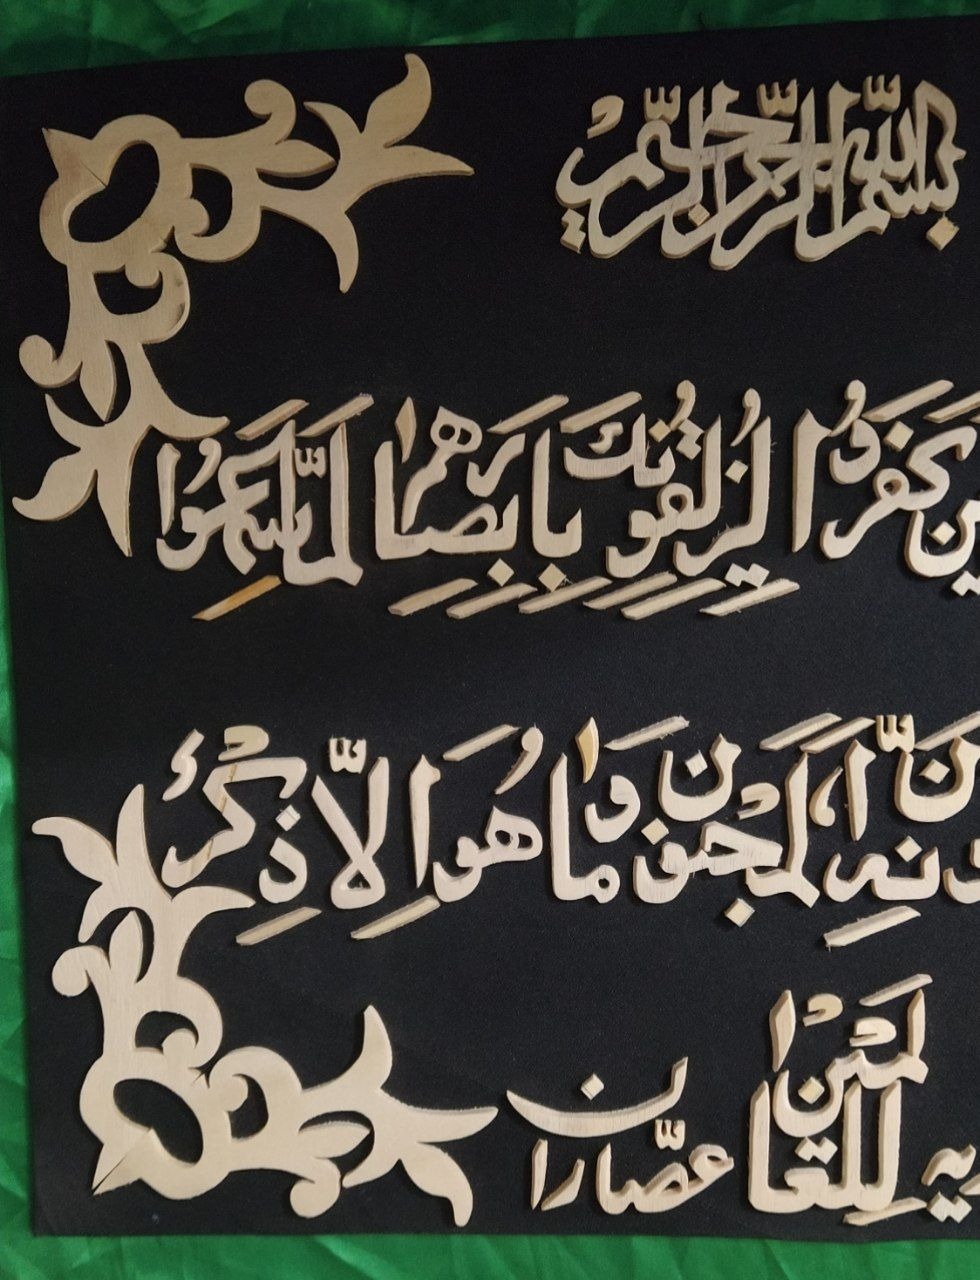 بسم الله الرحمن الرحيم
كَفَرُوا لَيُزْلِقُونَكَ بِاَبْصارِهِمْ لَمَّا سَمِعُوا
اِنَّهُ لَمَجْنُونٌ وَما هُوَ اِلّا ذِكْرٌ
لِلْعالَمينَ
عصّاران